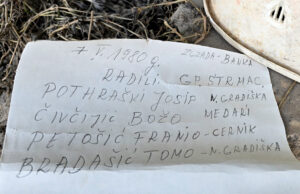 7 V. 1980 g. ZGRADA-BANKA
RADILI GP. STRMAC,
POTHRAŠKI JOSIP N. GRADIŠKA
ČIVČIJIĆ BOŽO MEDARI
PETOŠIĆ FRANJO-CERNIK
BRADAŠIĆ TOMO-N. GRADIŠKA